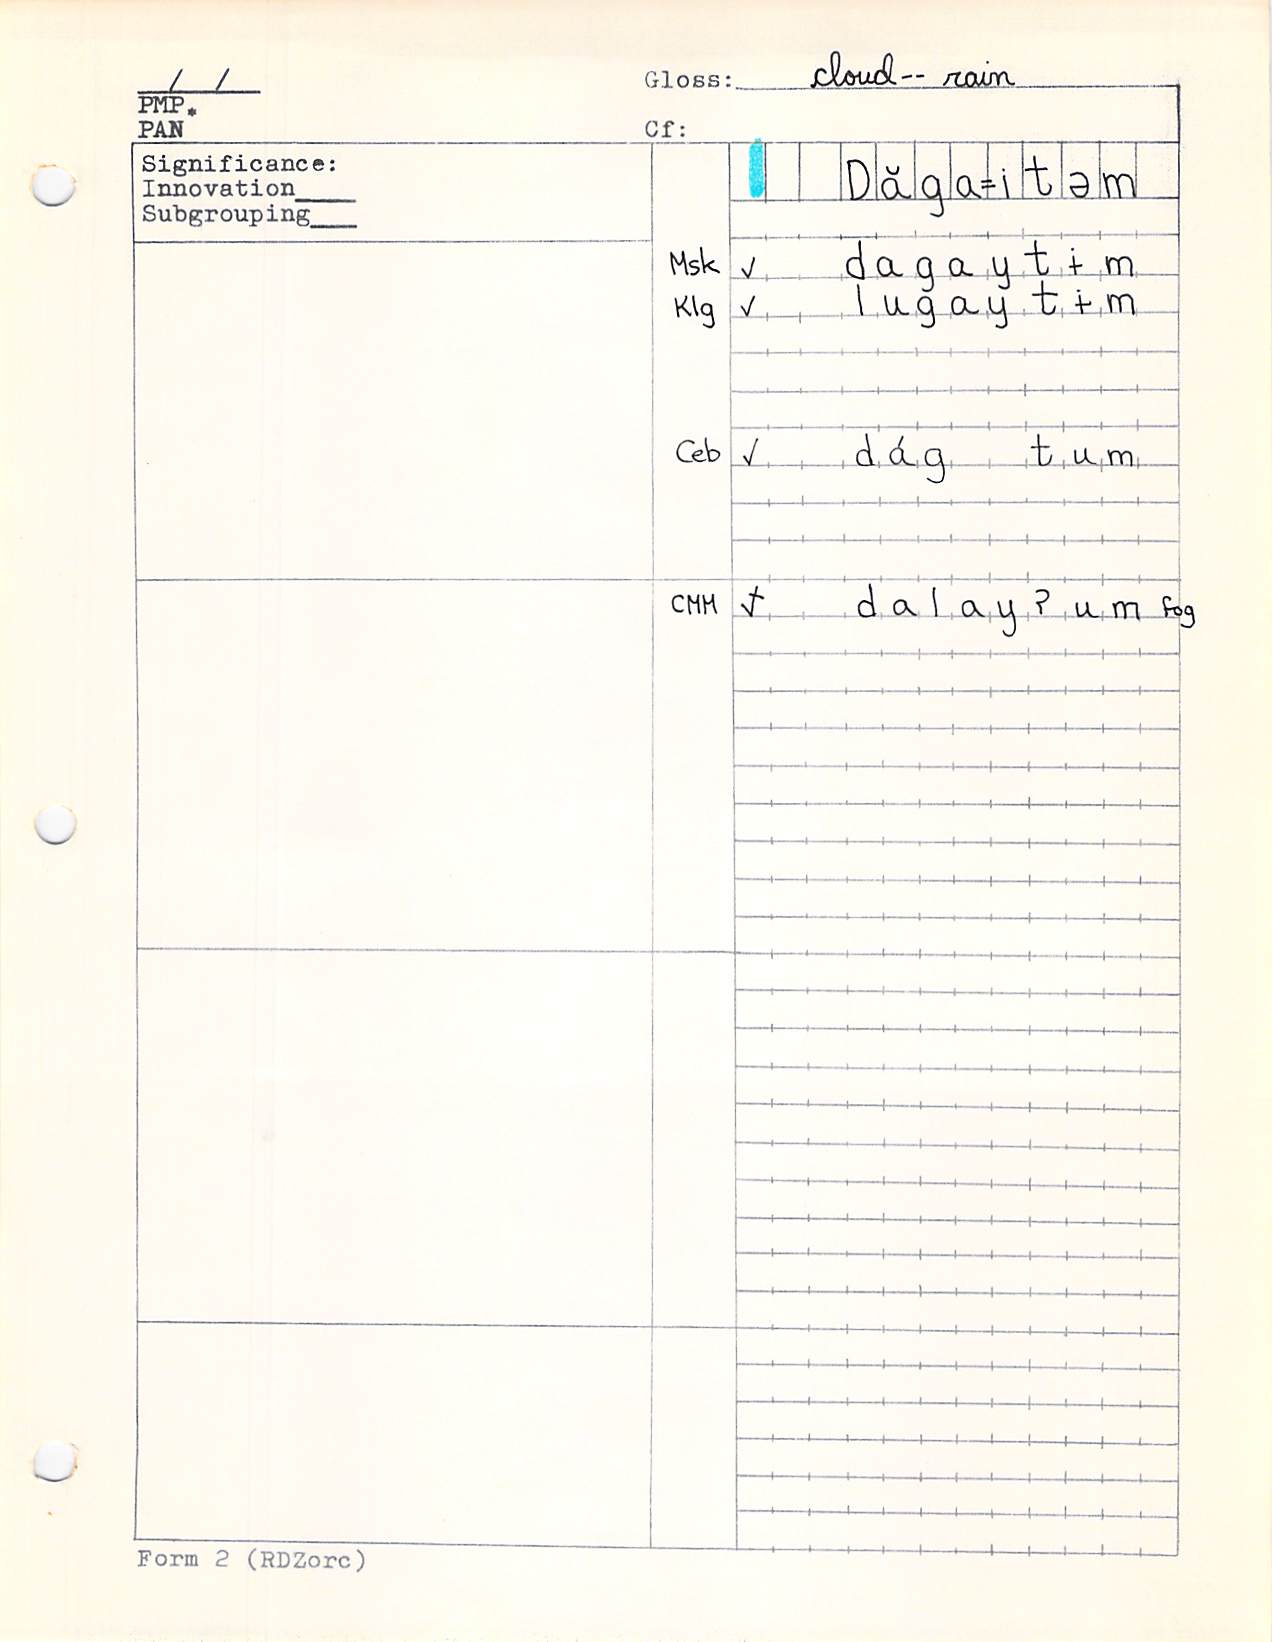 / /
Gloss: cloud -- rain
PMP*
PAN
Cf:
Significance:
Innovation
Subgrouping
Dăga=itəm
Msk ✓ dagaytɨm
Klg ✓ lugaytɨm
Ceb ✓ dág tum
CMM ✓ dalay?um fog
Form 2 (RDZorc)